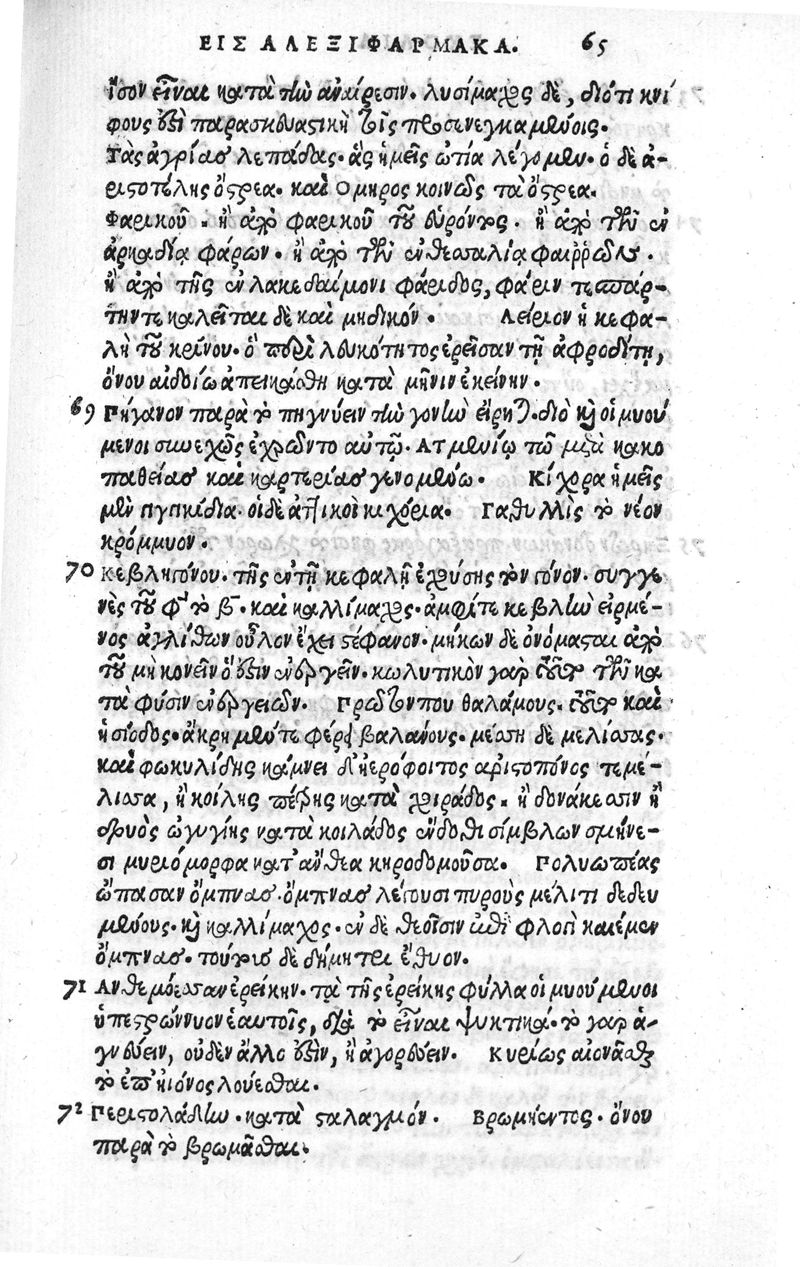 ΕΙΣ ΑΛΕΞΙΦΑΡΜΑΚΑ. 65
ἴσον εἶναι κατὰ τὴν ἀναίρεσιν. λυσίμαχος δὲ, διότι κνί
φους ἐστὶ παρασκευαστικὴ τοῖς προσενεγκαμένοις.
Τὰς ἀγρίας λεπάδας. ἃς ἡμεῖς ὠτία λέγομεν. ὁ δὲ ἀ-
ριστοτέλης ὄστρεα. καὶ Ομηρος κοινῶς τὰ ὄστρεα.
Φαρικοῦ. ἢ ἀπὸ φαρικοῦ τοῦ εὑρόντος. ἢ ἀπὸ τῶν ἐν
ἀρκαδία φάρων. ἢ ἀπὸ τῶν ἐν θεσσαλία
ἢ ἀπὸ τῆς ἐν λακεδαίμονι φάριδος, φάριν τε σπάρ-
την τε καλεῖται δὲ καὶ μηδικόν. Λείριον ἡ κεφα-
λὴ τοῦ κρίνου. ὃ περὶ λευκότητος ἐρεῖσαν τῇ ἀφροδίτῃ,
ὄνου αἰδοίω ἀπεικάσθη κατὰ μῆνιν ἐκείνην.
69 Πήγανον παρὰ τὸ πηγνύειν τὴν γονὴν εἴρηται. διὸ καὶ οἱ μυού
μενοι συνεχῶς ἐχρῶντο αὐτῷ. Ατμενίῳ τῶ μετὰ κακο
παθείας καὶ καρτερίας γενομένω. Κίχορα ἡμεῖς
μὲν πηκίδια. οἱ δὲ ἀττικοὶ κιχόρια. Γαθυλλὶς τὸ νέον
κρόμμυον.
70 Κεβληγόνου. τῆς ἐν τῇ κεφαλῇ ἐχούσης τὸν γόνον. συγγε
νὲς τοῦ φ τὸ β. καὶ καλλίμαχος. ἀμφί τε κεβλὴν εἰρμέ-
νος ἀγλίθων οὖλον ἔχει στέφανον. μήκων δὲ ὀνόμασται ἀπὸ
τοῦ μὴ κονεῖν ὅ ἐστιν ἐνεργεῖν. κωλυτικὸν γάρ ἐστι τῶν κα
τὰ φύσιν ἐνεργειῶν. Πρῶτόν που θαλάμους. τοῦτο καὶ
ἡσίοδος. ἄκρη μέν τε φέρει βαλάνους. μέσση δὲ μελίσσας.
καὶ φωκυλίδης κάμνει δ' ἠερόφοιτος ἀριστοπόνος τε μέ-
λισσα, ἢ κοίλης πέτρης κατὰ χειράδος. ἢ δονάκεσσιν ἢ
δρυὸς ὠγυγίης κατὰ κοιλάδος ἔνδοθι σίμβλων σμήνε-
σι μυριόμορφα κατ' ἄνθεα κηροδομοῦσα. Πολυωπέας
ὤπασαν ὄμπνας. ὄμπνας λέγουσι πυροὺς μέλιτι δεδευ
μένους. καὶ καλλίμαχος. ἐν δὲ θεοῖσιν ἐπὶ φλογὶ καιέμεν
ὄμπνας. τούτοις δὲ δήμητρι ἔθυον.
71 Ανθεμόεσσαν ἐρείκην. τὰ τῆς ἐρείκης φύλλα οἱ μυούμενοι
ὑπεστρώννυον ἑαυτοῖς, διὰ τὸ εἶναι ψυκτικά. τὸ γὰρ ἁ-
γνεύειν, οὐδὲν ἄλλο ἐστὶν, ἢ ἀγορεύειν. Κυρίως αἰονᾶσθαι
τὸ ἐπ' ἠϊόνος λούεσθαι.
72 Περιστολάδην. κατὰ σταλαγμόν. Βρωμήεντος. ὄνου
παρὰ τὸ βρωμᾶσθαι.